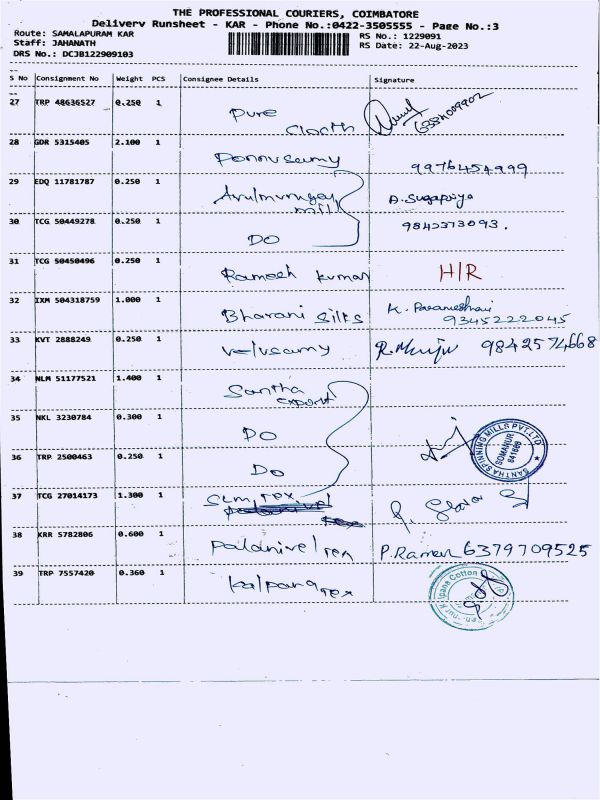 THE PROFESSIONAL COURIERS, COIMBATORE
Delivery Runsheet - KAR - Phone No.:0422-3505555 - Page No.:3
Route: SAMALAPURAM KAR RS No.: 1229091
Staff: JAHANATH RS Date: 22-Aug-2023
DRS No.: DCJB122909103
S No Consignment No Weight PCS Consignee Details Signature
27 TRP 48636527 0.250 1 Pure
Cloth
28 GDR 5315405 2.100 1 Ponnusamy 9976454999
29 EDQ 11781787 0.250 1 Arulmurugan A. Sugapriya
mill
30 TCG 50449278 0.250 1 DO 9842373093.
31 TCG 50450496 0.250 1 Ramesh kumar H/R
32 IXM 504318759 1.000 1 Bharani silks K. Parameshwari
9345222045
33 KVT 2888249 0.250 1 velusamy 9842574668
34 NLM 51177521 1.400 1 Santha
export
35 NKL 3230784 0.300 1 DO
SANTHA SPINNING MILLS PVT.LTD
SOMANUR
641668
36 TRP 2500463 0.250 1 DO
37 TCG 27014173 1.300 1
38 KRR 5782806 0.600 1 palanivel tex P.Raman 6379709525
39 TRP 7557420 0.360 1 kalpana tex
Kalpana Cotton